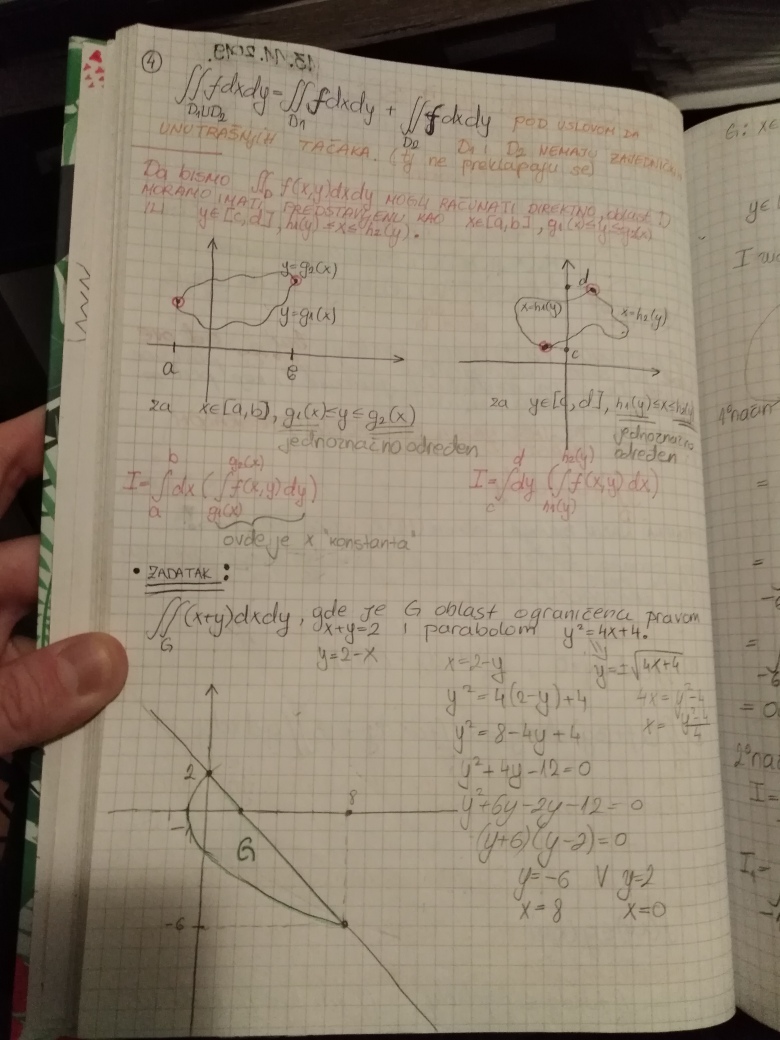 13.11.2019.
④ ∬_{D₁∪D₂} f dxdy = ∬_{D₁} f dxdy + ∬_{D₂} f dxdy POD USLOVOM DA D₁ I D₂ NEMAJU ZAJEDNIČKIH
UNUTRAŠNJIH TAČAKA. (tj ne preklapaju se)
Da bismo ∬_D f(x,y)dxdy MOGLI RAČUNATI DIREKTNO, oblast D
MORAMO IMATI PREDSTAVLJENU KAO x∈[a,b], g₁(x)≤y≤g₂(x)
ILI y∈[c,d], h₁(y)≤x≤h₂(y).
y=g₂(x)
y=g₁(x)
a b
d
x=h₁(y) x=h₂(y)
c
za x∈[a,b], g₁(x)≤y≤g₂(x)
jednoznačno određen
za y∈[c,d], h₁(y)≤x≤h₂(y)
jednoznačno
određen
I=∫_a^b dx (∫_{g₁(x)}^{g₂(x)} f(x,y)dy)
ovde je x "konstanta"
I=∫_c^d dy (∫_{h₁(y)}^{h₂(y)} f(x,y)dx)
• ZADATAK:
∬_G (x+y)dxdy, gde je G oblast ograničena pravom
x+y=2 i parabolom y²=4x+4.
y=2-x
x=2-y
y²=4(2-y)+4
y²=8-4y+4
y²+4y-12=0
y²+6y-2y-12=0
(y+6)(y-2)=0
y=-6 ∨ y=2
x=8 x=0
y=±√(4x+4)
4x=y²-4
x=(y²-4)/4
2
8
-1
G
-6
G: x∈
y∈
I
=
=
=
= 0
I=
I₁=